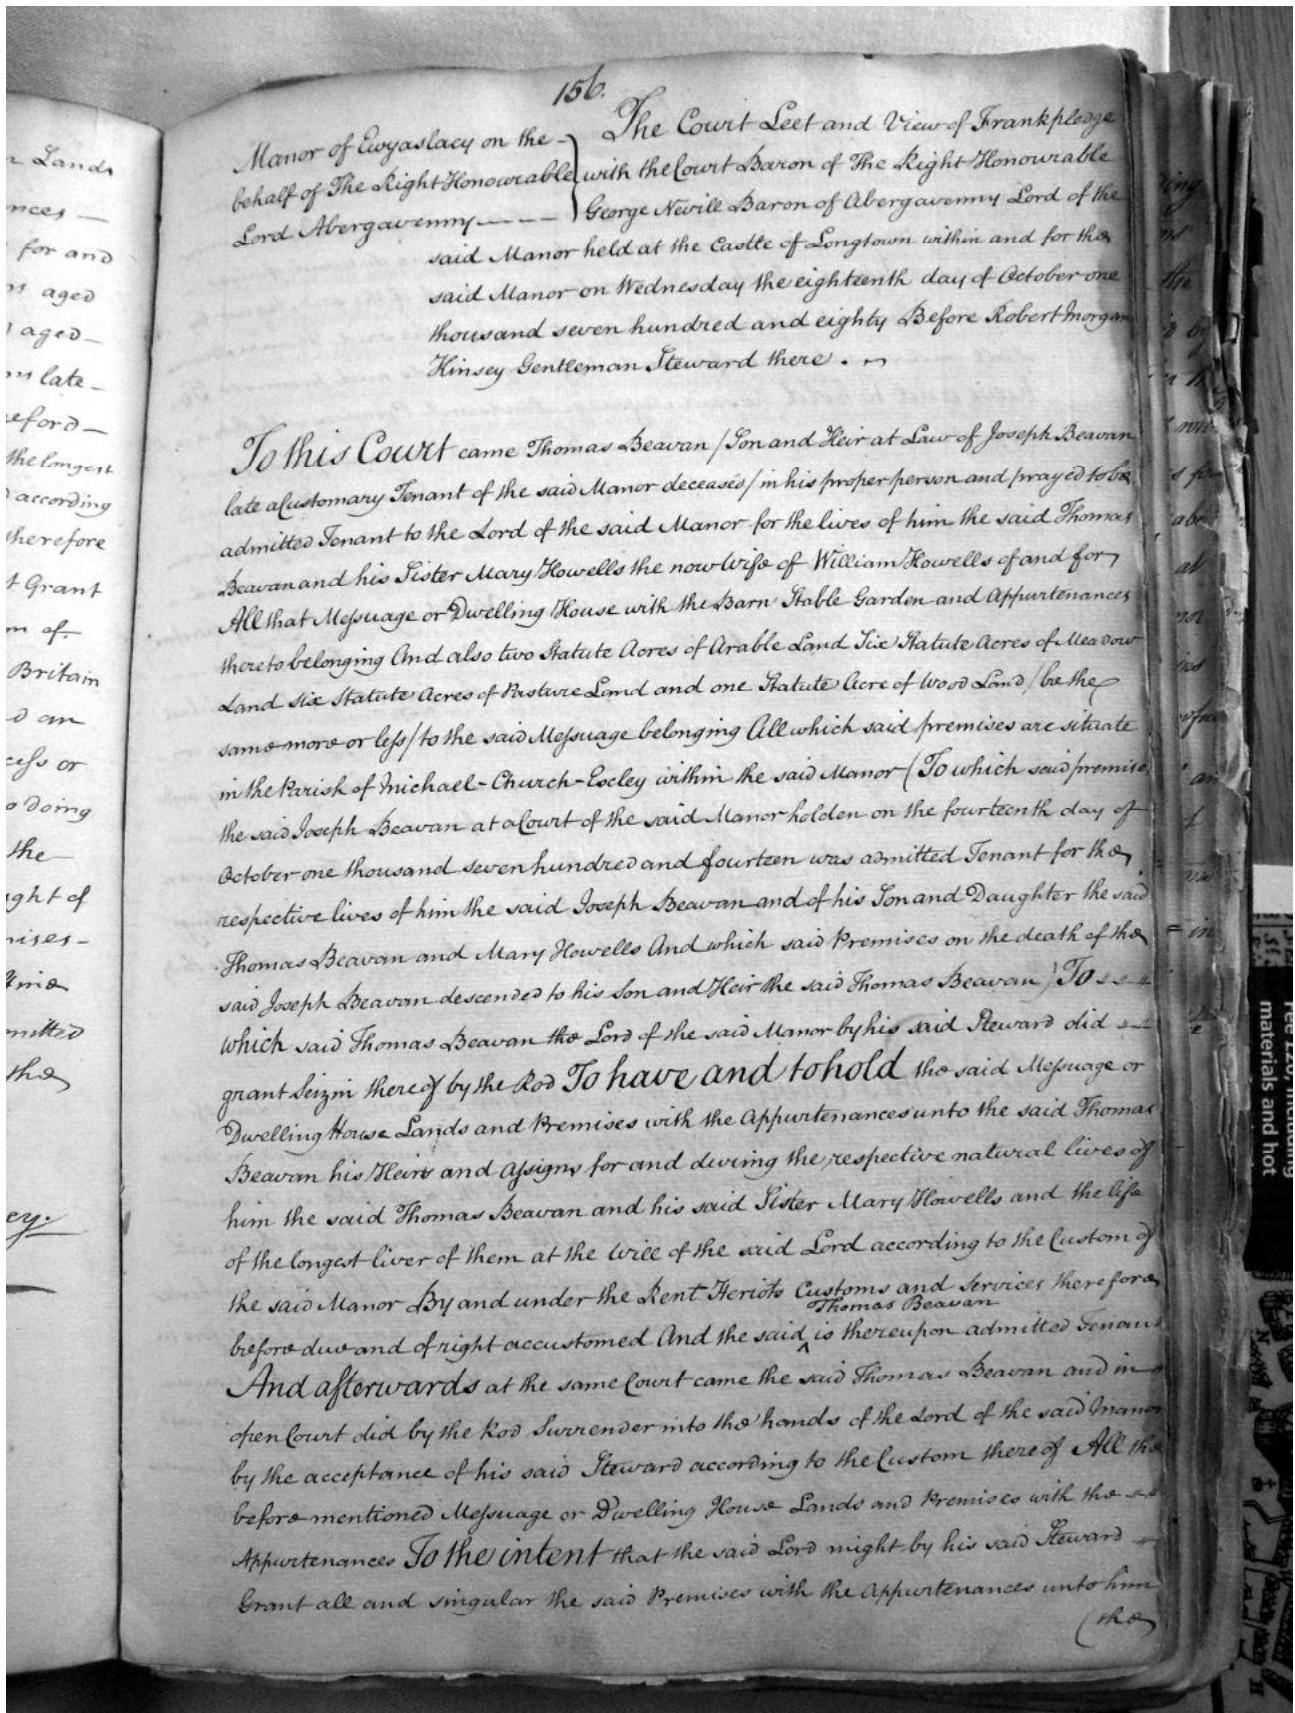 156.
Manor of Ewyaslacy on the
behalf of The Right Honourable
Lord Abergavenny
The Court Leet and View of Frankpledge
with the Court Baron of The Right Honourable
George Nevill Baron of Abergavenny Lord of the
said Manor held at the Castle of Longtown within and for the
said Manor on Wednesday the eighteenth day of October one
thousand seven hundred and eighty Before Robert Morgan
Kinsey Gentleman Steward there .
To this Court came Thomas Beavan / Son and Heir at Law of Joseph Beavan
late a Customary Tenant of the said Manor deceased / in his proper person and prayed to be
admitted Tenant to the Lord of the said Manor for the lives of him the said Thomas
Beavan and his Sister Mary Howells the now Wife of William Howells of and for
All that Messuage or Dwelling House with the Barn Stable Garden and Appurtenances
thereto belonging And also two Statute Acres of Arable Land Six Statute Acres of Meadow
Land six Statute Acres of Pasture Land and one Statute Acre of Wood Land / be the
same more or less / to the said Messuage belonging All which said premises are situate
in the Parish of Michael-Church-Escley within the said Manor (To which said premises
the said Joseph Beavan at a Court of the said Manor holden on the fourteenth day of
October one thousand seven hundred and fourteen was admitted Tenant for the
respective lives of him the said Joseph Beavan and of his Son and Daughter the said
Thomas Beavan and Mary Howells And which said Premises on the death of the
said Joseph Beavan descended to his Son and Heir the said Thomas Beavan) To
which said Thomas Beavan the Lord of the said Manor by his said Steward did
grant Seizin thereof by the Rod To have and to hold the said Messuage or
Dwelling House Lands and Premises with the Appurtenances unto the said Thomas
Beavan his Heirs and Assigns for and during the respective natural lives of
him the said Thomas Beavan and his said Sister Mary Howells and the life
of the longest liver of them at the Will of the said Lord according to the Custom of
the said Manor By and under the Rent Heriots Customs and Services therefore
Thomas Beavan
before due and of right accustomed And the said ^ is thereupon admitted Tenant
And afterwards at the same Court came the said Thomas Beavan and in
open Court did by the Rod Surrender into the hands of the Lord of the said Manor
by the acceptance of his said Steward according to the Custom thereof All the
before mentioned Messuage or Dwelling House Lands and Premises with the
Appurtenances To the intent that the said Lord might by his said Steward
Grant all and singular the said Premises with the Appurtenances unto him
(the
Lands
for and
aged
aged
late
the longest
according
therefore
Grant
of
Britain
an
or
doing
the
of
the
materials and hot